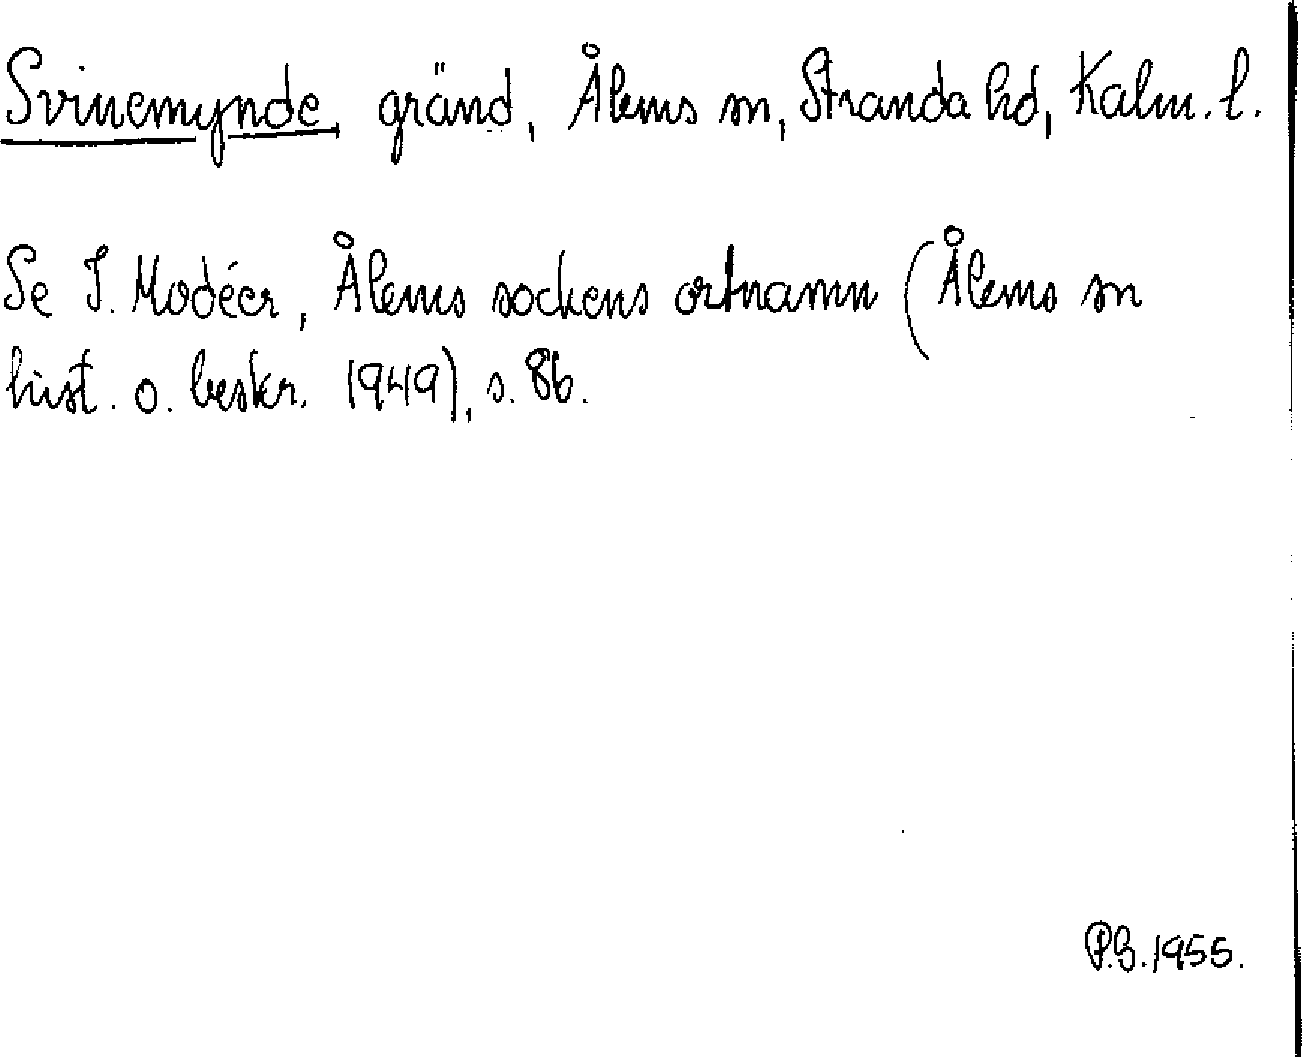 Svinemynde, gränd, Ålems sn, Stranda hd, Kalm. l.
Se I. Modéer, Ålems sockens ortnamn (Ålems sn
hist. o. beskr. 1949), s. 86.
P.G. 1955.